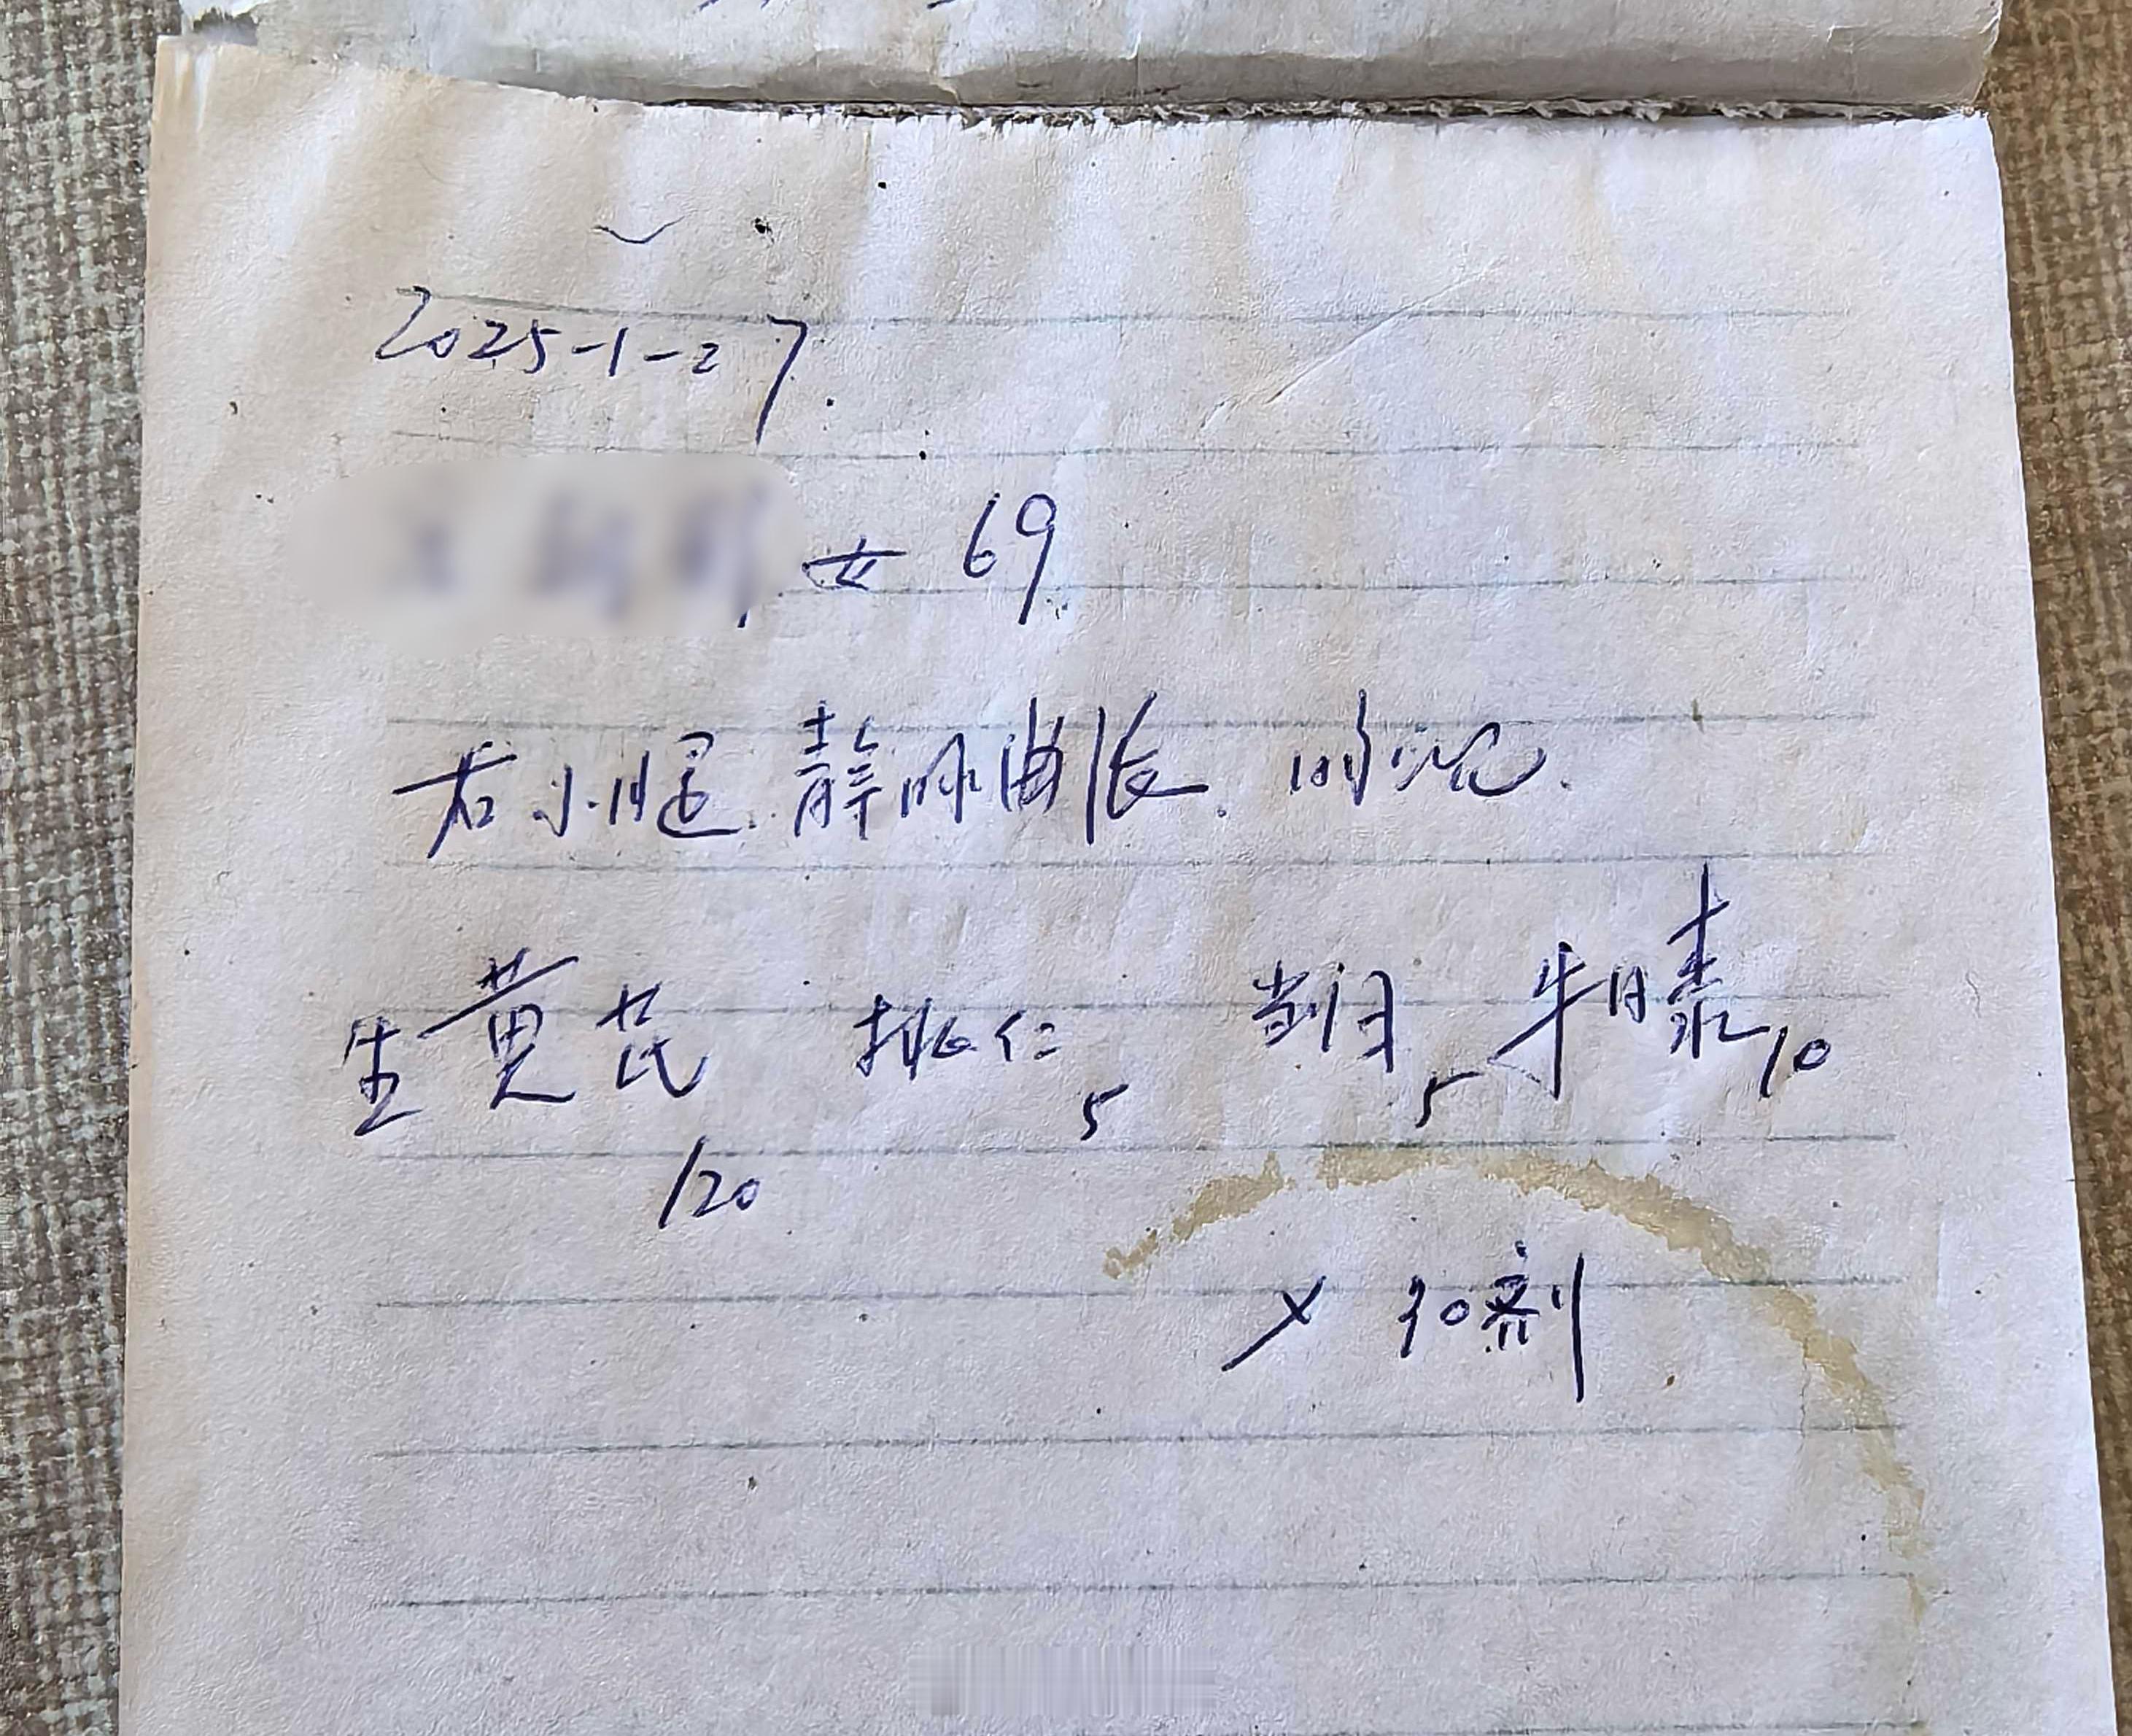 2025-1-27.
女 69
右小腿静脉曲张.
生黄芪120 桃仁5 当归5 牛膝10
剂